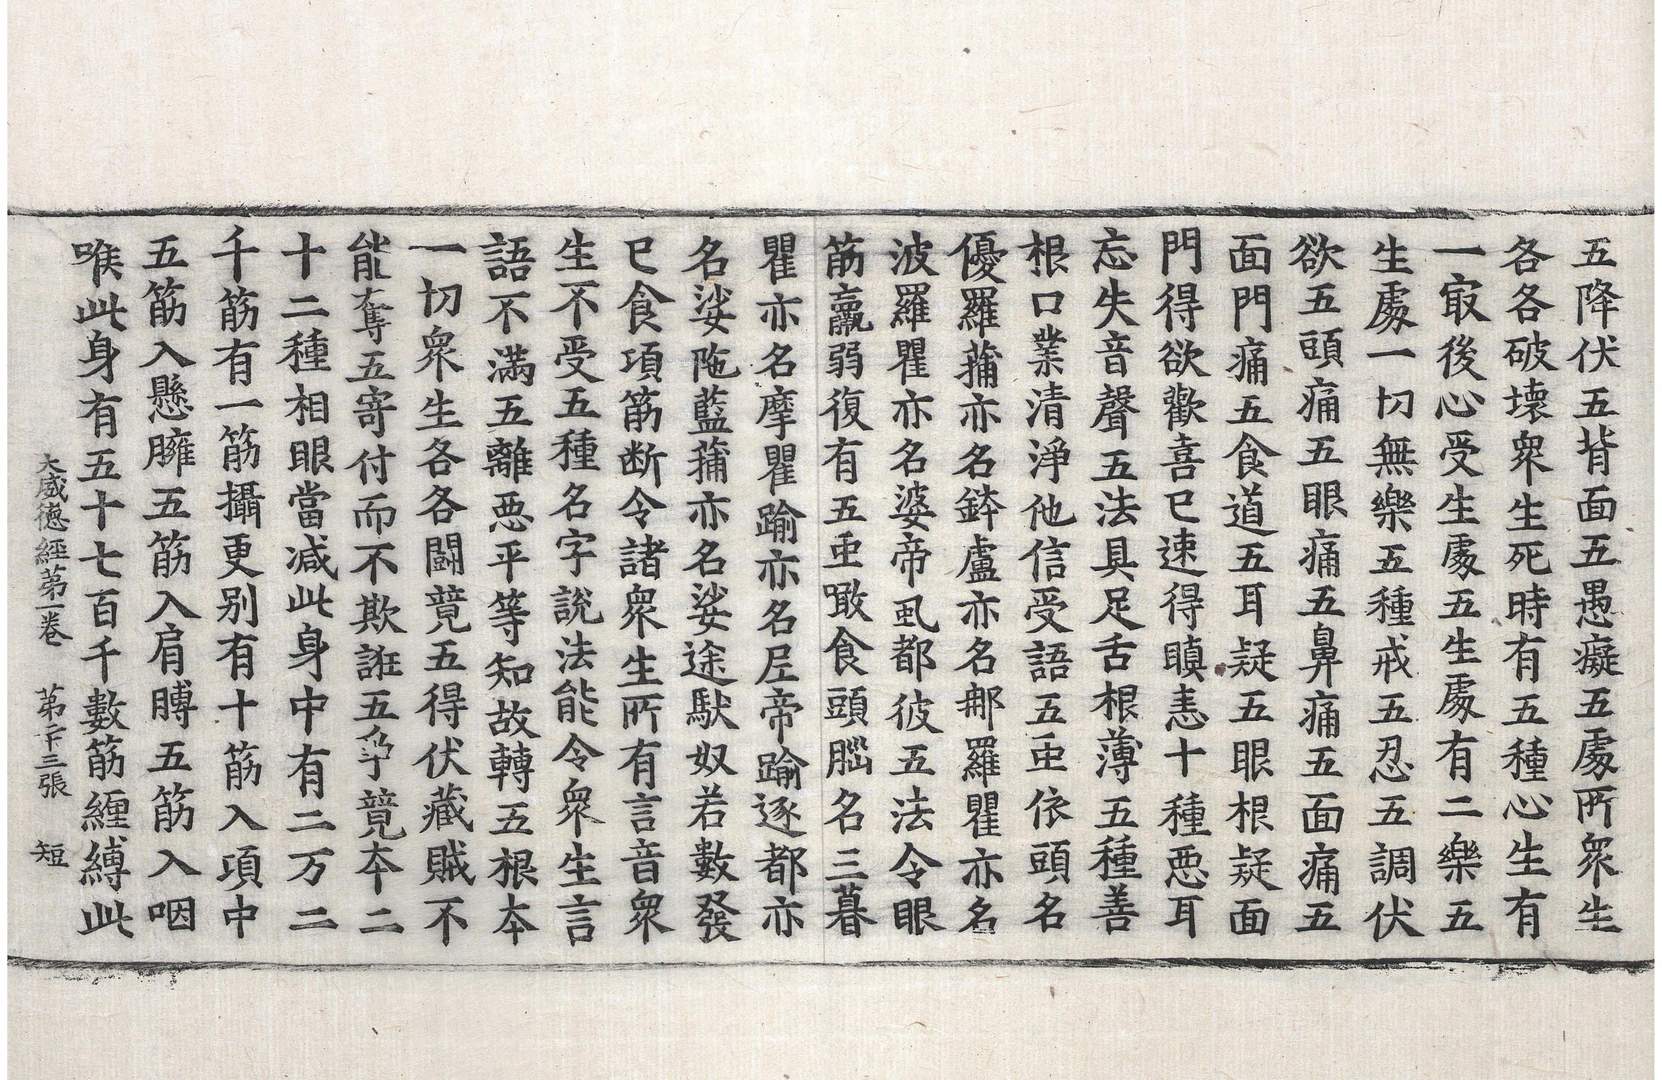 五降伏五背面五愚癡五處所衆生
各各破壞衆生死時有五種心生有
一㝡後心受生處五生處有二樂五
生處一切無樂五種戒五忍五調伏
欲五頭痛五眼痛五鼻痛五面痛五
面門痛五食道五耳疑五眼根疑面
門得欲歡喜已速得瞋恚十種惡耳
忘失音聲五法具足舌根薄五種善
根口業清淨他信受語五䖝依頭名
優羅蒱亦名鉢盧亦名那羅瞿亦名
波羅瞿亦名婆帝虱都彼五法令眼
筋羸弱復有五䖝噉食頭腦名三暮
瞿亦名摩瞿踰亦名𡰱帝踰逐都亦
名娑陁藍蒱亦名娑途馱奴若數發
已食項筋断令諸衆生所有言音衆
生不受五種名字說法能令衆生言
語不滿五離惡平等知故轉五根本
一切衆生各各鬪竟五得伏藏賊不
能奪五寄付而不欺誑五爭竟本二
十二種相眼當减此身中有二万二
千筋有一筋攝更别有十筋入項中
五筋入懸臃五筋入肩髆五筋入咽
喉此身有五十七百千數筋纏縛此
大威德經第一卷 第二十三張 短